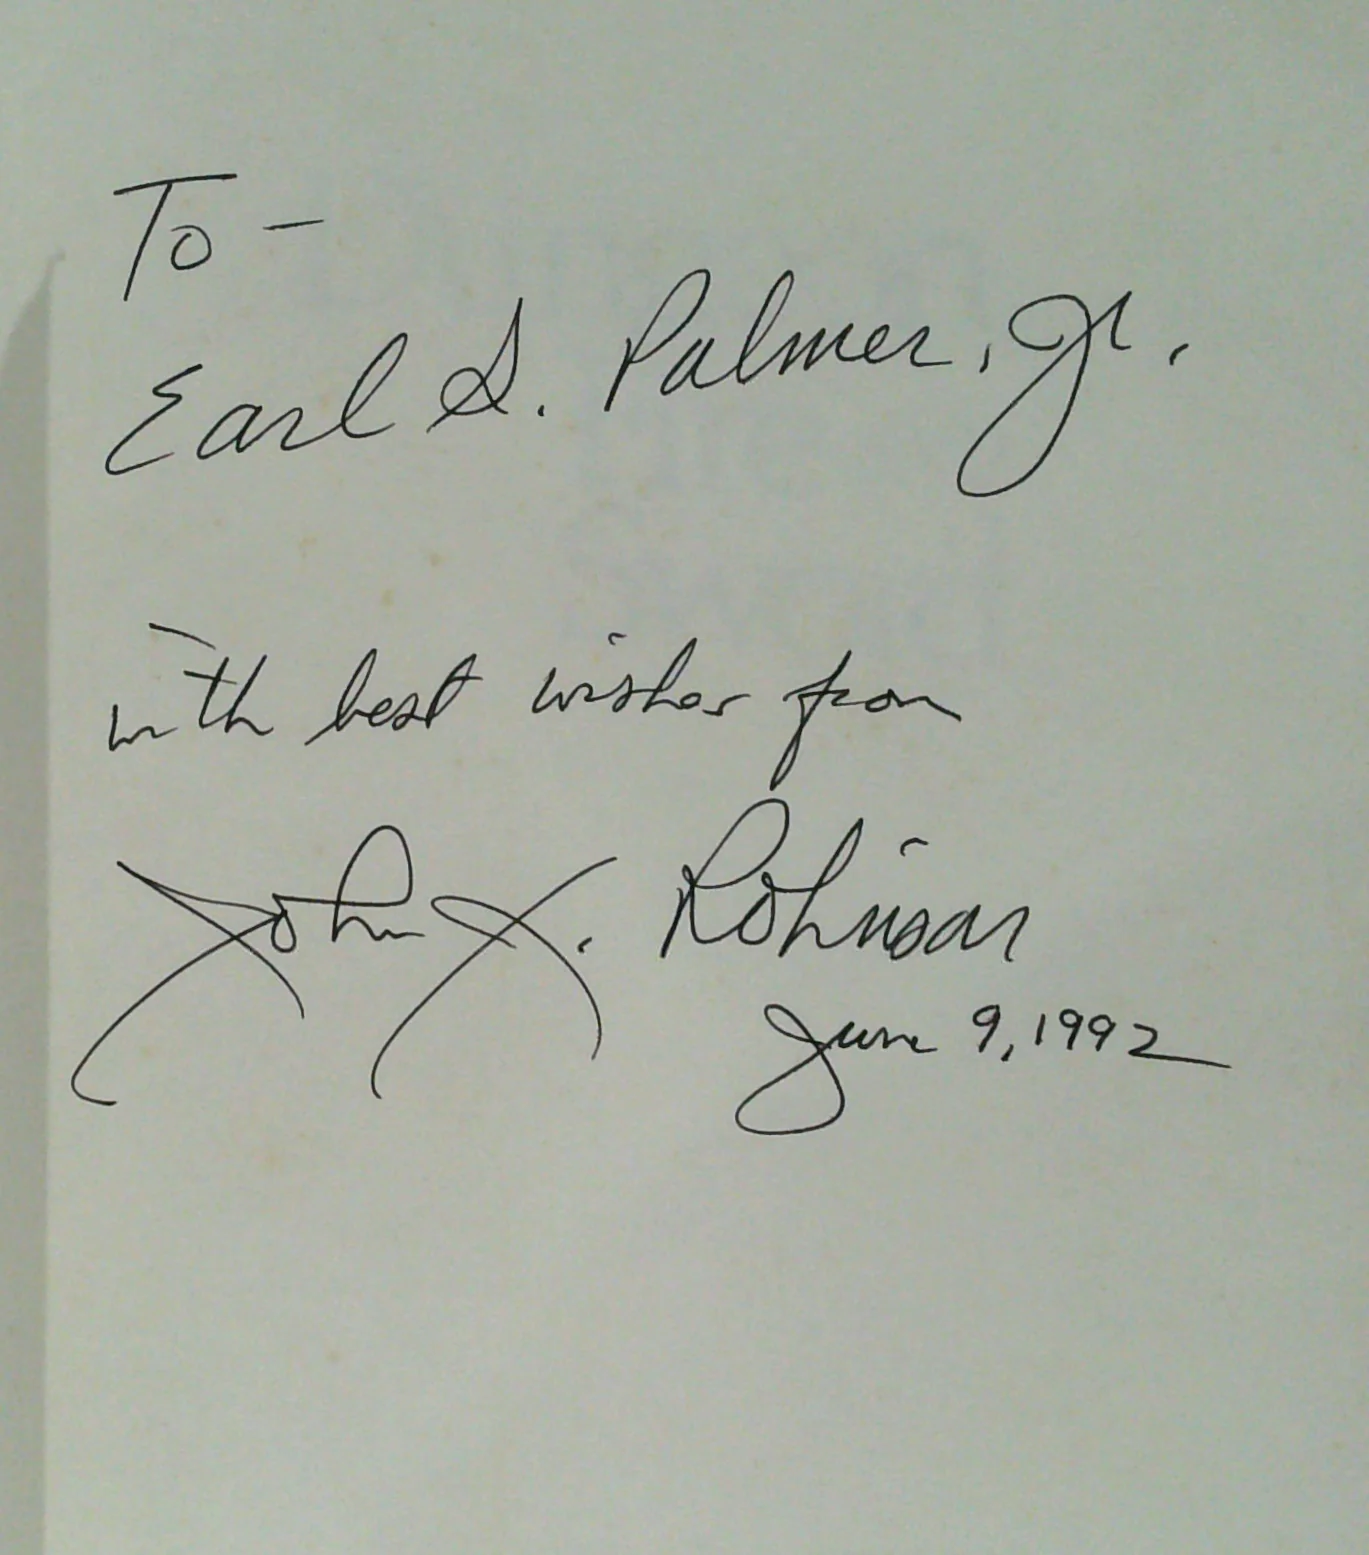 To –
Earl S. Palmer, Jr.
with best wishes from
John J. Robinson
June 9, 1992